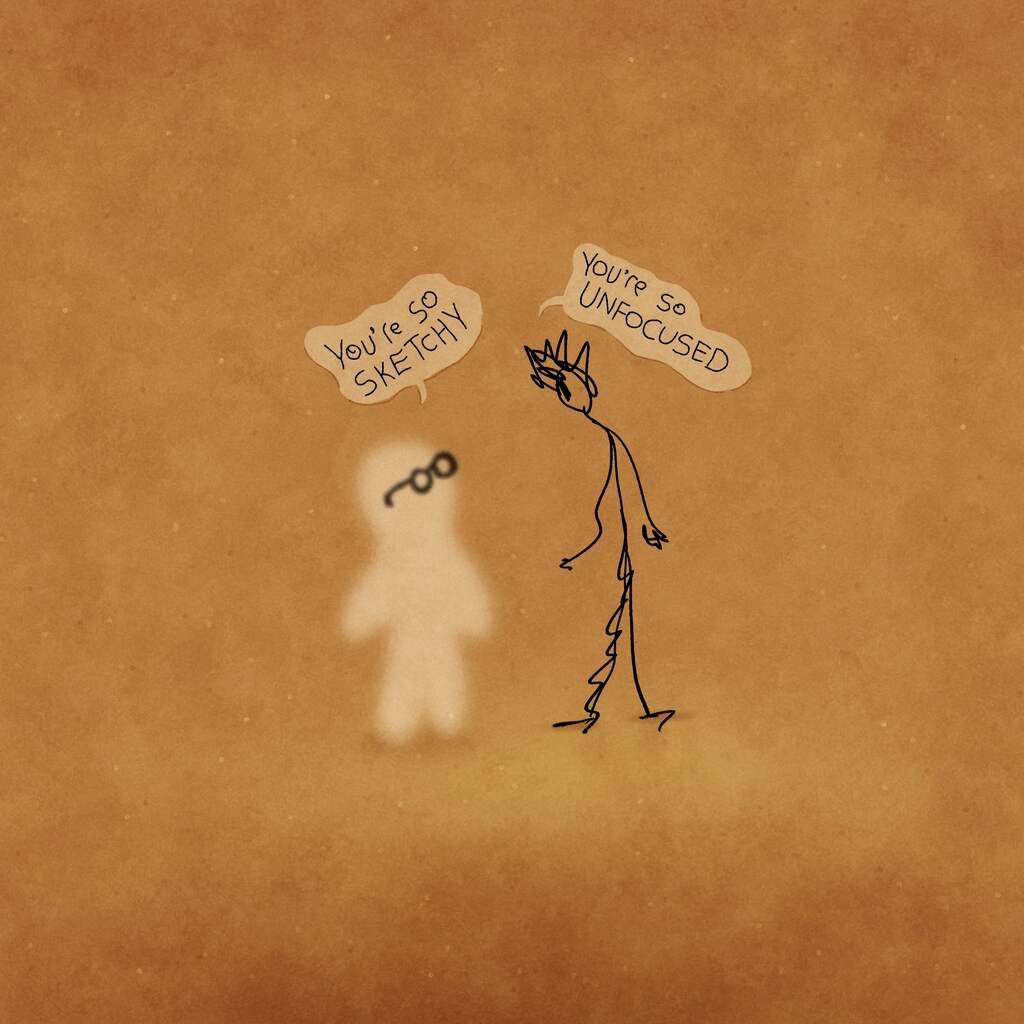 You're so
SKETCHY
You're so
UNFOCUSED